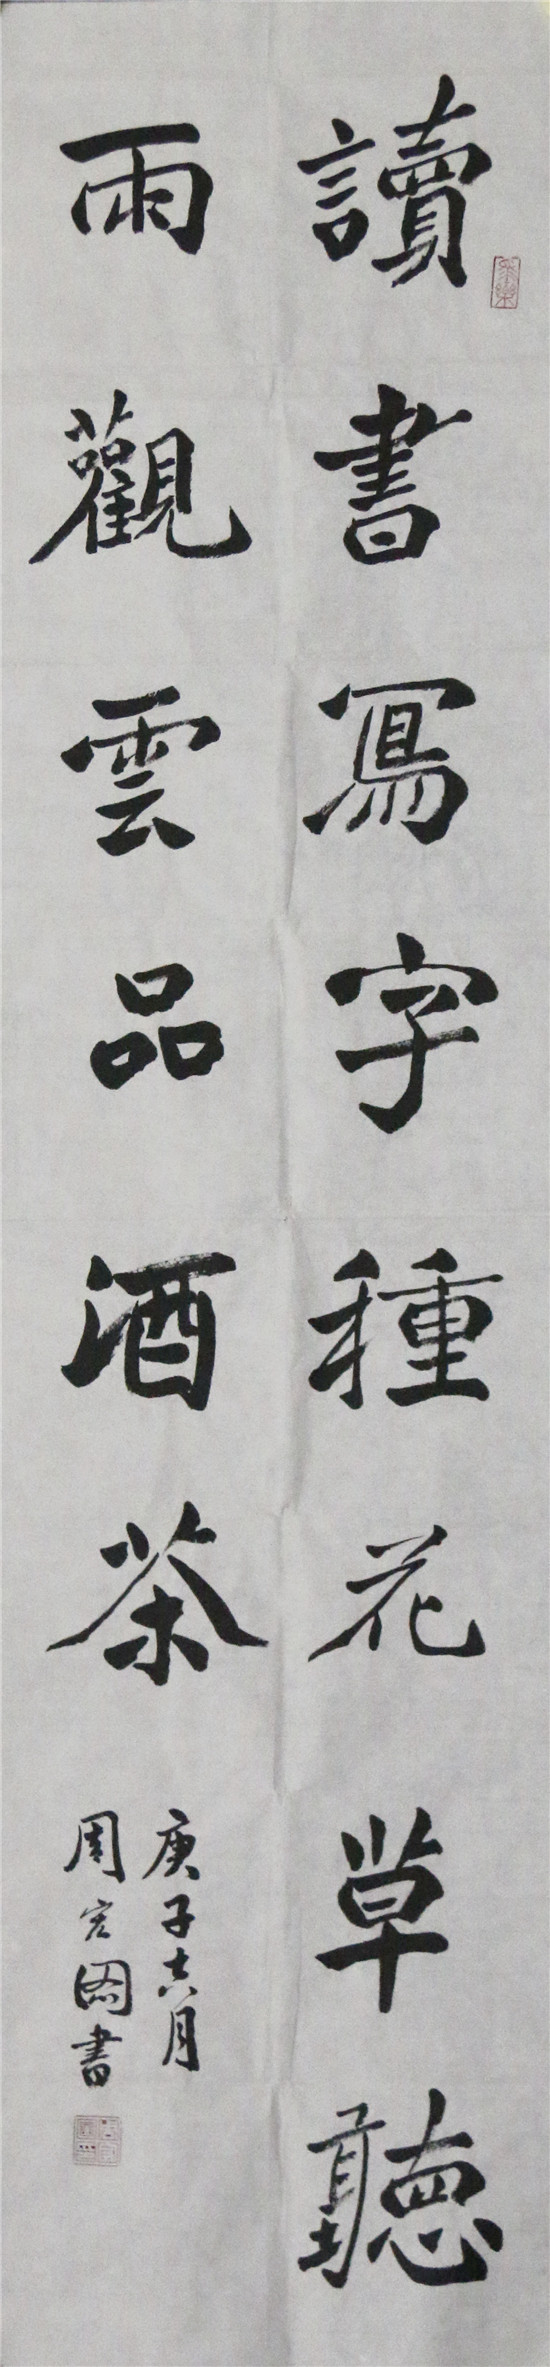 讀書寫字種花草聽
雨觀雲品酒茶
庚子六月
周宏图書